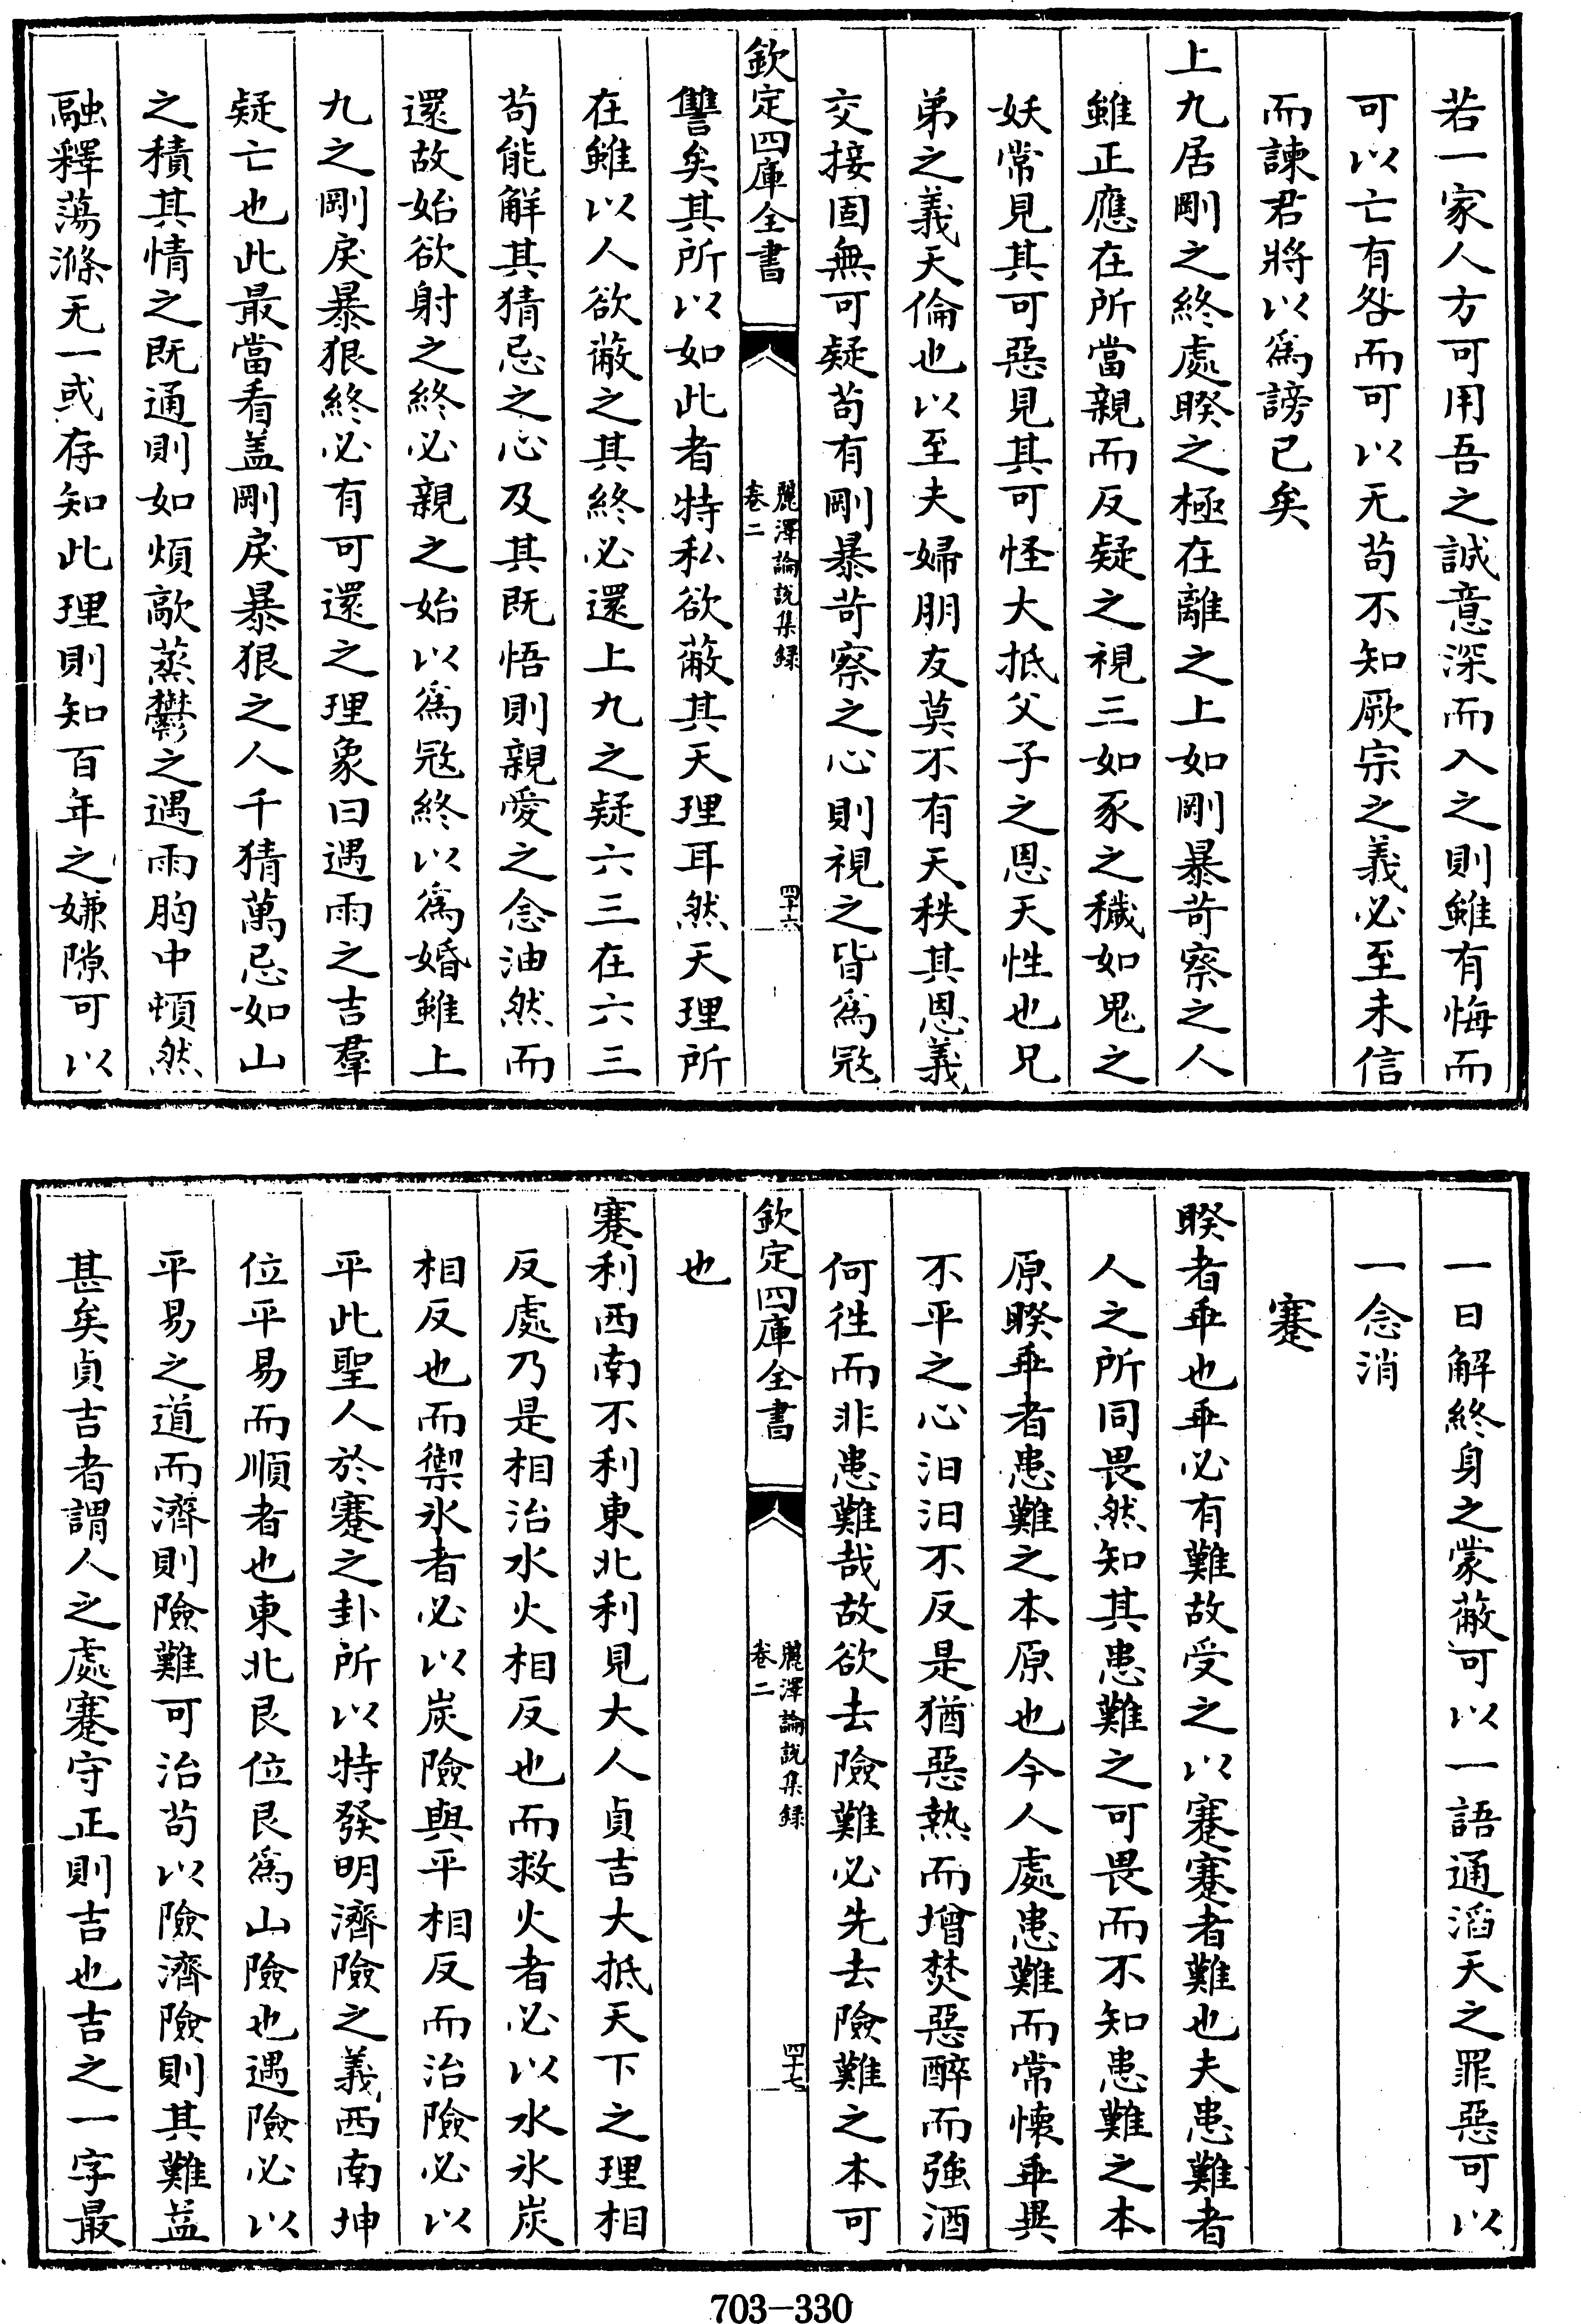 若一家人方可用吾之誠意深而入之則雖有悔而
可以亡有咎而可以无苟不知厥宗之義必至未信
而諫君將以為謗已矣
上九居剛之終處睽之極在離之上如剛暴苛察之人
雖正應在所當親而反疑之視三如豕之穢如鬼之
妖常見其可惡見其可怪大抵父子之恩天性也兄
弟之義天倫也以至夫婦朋友莫不有天秩其恩義
交接固無可疑苟有剛暴苛察之心則視之皆為宼
欽定四庫全書
麗澤論說集録
卷二
四十六
讐矣其所以如此者特私欲蔽其天理耳然天理所
在雖以人欲蔽之其終必還上九之疑六三在六三
苟能解其猜忌之心及其既悟則親愛之念油然而
還故始欲射之終必親之始以為宼終以為婚雖上
九之剛戾暴狠終必有可還之理象曰遇雨之吉羣
疑亡也此最當看盖剛戾暴狠之人千猜萬忌如山
之積其情之既通則如煩歊蒸鬱之遇雨胸中頓然
融釋蕩滌无一或存知此理則知百年之嫌隙可以
一日解終身之蒙蔽可以一語通滔天之罪惡可以
一念消
蹇
睽者乖也乖必有難故受之以蹇蹇者難也夫患難者
人之所同畏然知其患難之可畏而不知患難之本
原睽乖者患難之本原也今人處患難而常懷乖異
不平之心汩汩不反是猶惡熱而增焚惡醉而強酒
何徃而非患難哉故欲去險難必先去險難之本可
欽定四庫全書
麗澤論說集録
卷二
四十七
也
蹇利西南不利東北利見大人貞吉大抵天下之理相
反處乃是相治水火相反也而救火者必以水氷炭
相反也而禦氷者必以炭險與平相反而治險必以
平此聖人於蹇之卦所以特發明濟險之義西南坤
位平易而順者也東北艮位艮為山險也遇險必以
平易之道而濟則險難可治苟以險濟險則其難益
甚矣貞吉者謂人之處蹇守正則吉也吉之一字最
703-330